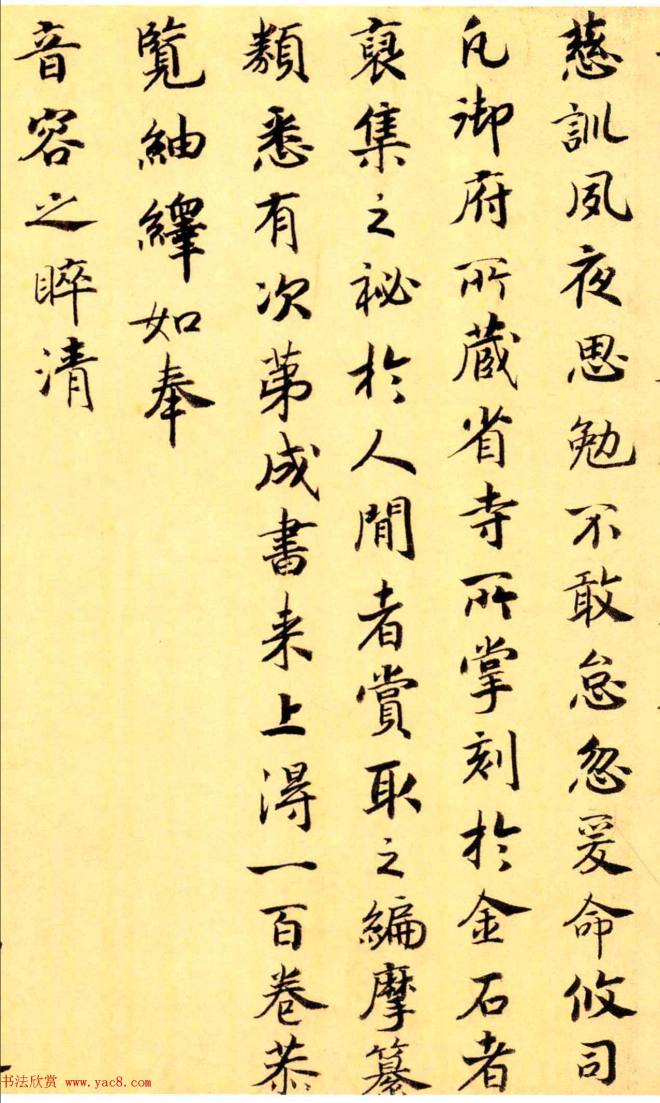 慈訓夙夜思勉不敢怠忽爰命攸司
凡御府所蔵省寺所掌刻於金石者
裒集之祕於人間者賞取之編摩纂
類悉有次第成書来上得一百卷恭
覽紬繹如奉
音容之睟清
书法欣赏 www.yac8.com